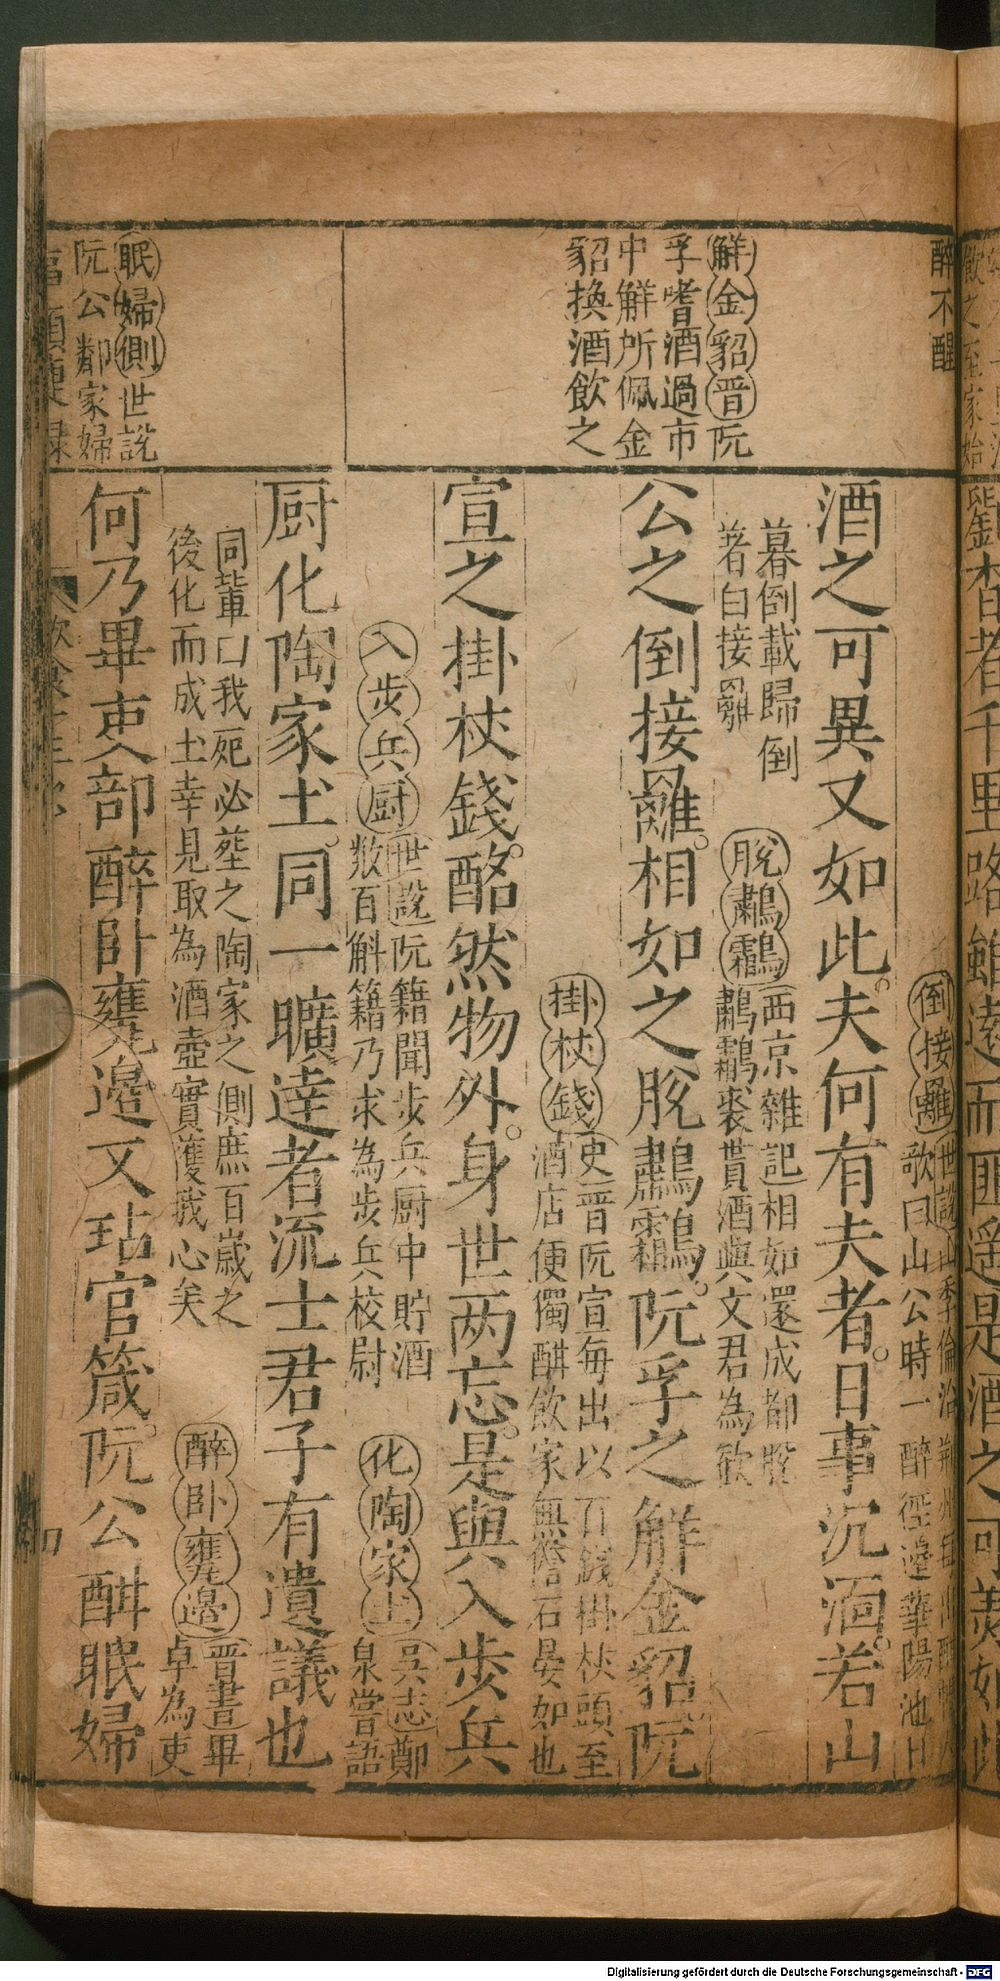 醉不醒
解金貂晋阮
孚嗜酒過市
中觧所佩金
貂換酒飲之
眠婦側世說
阮公鄰家婦
倒接䍦世說山季倫治荊州
歌曰山公時一醉徑造華陽池日
酒之可異又如此夫何有夫者日事沉湎若山
暮倒載歸倒
著白接䍦
脫鷫鸘西京雜記相如還成都脫
鷫鸘裘貰酒與文君為歡
公之倒接䍦相如之脫鷫鸘阮孚之觧金貂阮
掛杖錢史晋阮宣每出以百錢掛杖頭至
酒店便獨酣飲家無儋石晏如也
宣之掛杖錢酩然物外身世两忘是與入步兵
入步兵厨世說阮籍聞步兵厨中貯酒
数百斛籍乃求為步兵校尉
化陶家土吳志鄭
泉嘗語
厨化陶家土同一曠達者流士君子有遺議也
同輩曰我死必塟之陶家之側庶百歲之
後化而成土幸見取為酒壺實獲我心矣
醉卧甕邊晋書畢
卓為吏
何乃畢吏部醉卧甕邊又玷官箴阮公酣眠婦
Digitalisierung gefördert durch die Deutsche Forschungsgemeinschaft - DFG